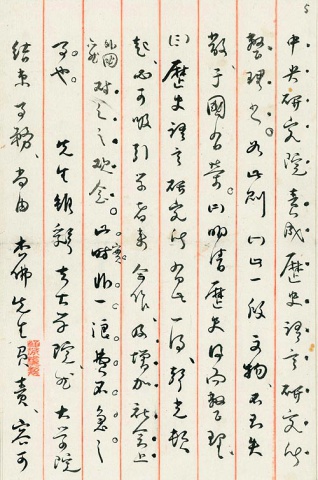 5
中央研究院責成歷史語言研究所
整理之。如此則(一)此一段文物,不至失
散,于國有榮。(二)明清歷史得而整理。
(三)歷史語言研究所有此一得,聲光頓
起,必可吸引學者來合作,及增加社會上
外國對之之觀念。此實非一浪費不急之
事也。 先生雖辭去大學院,然大學院
結束事務,尚由 杏佛先生負責,容可